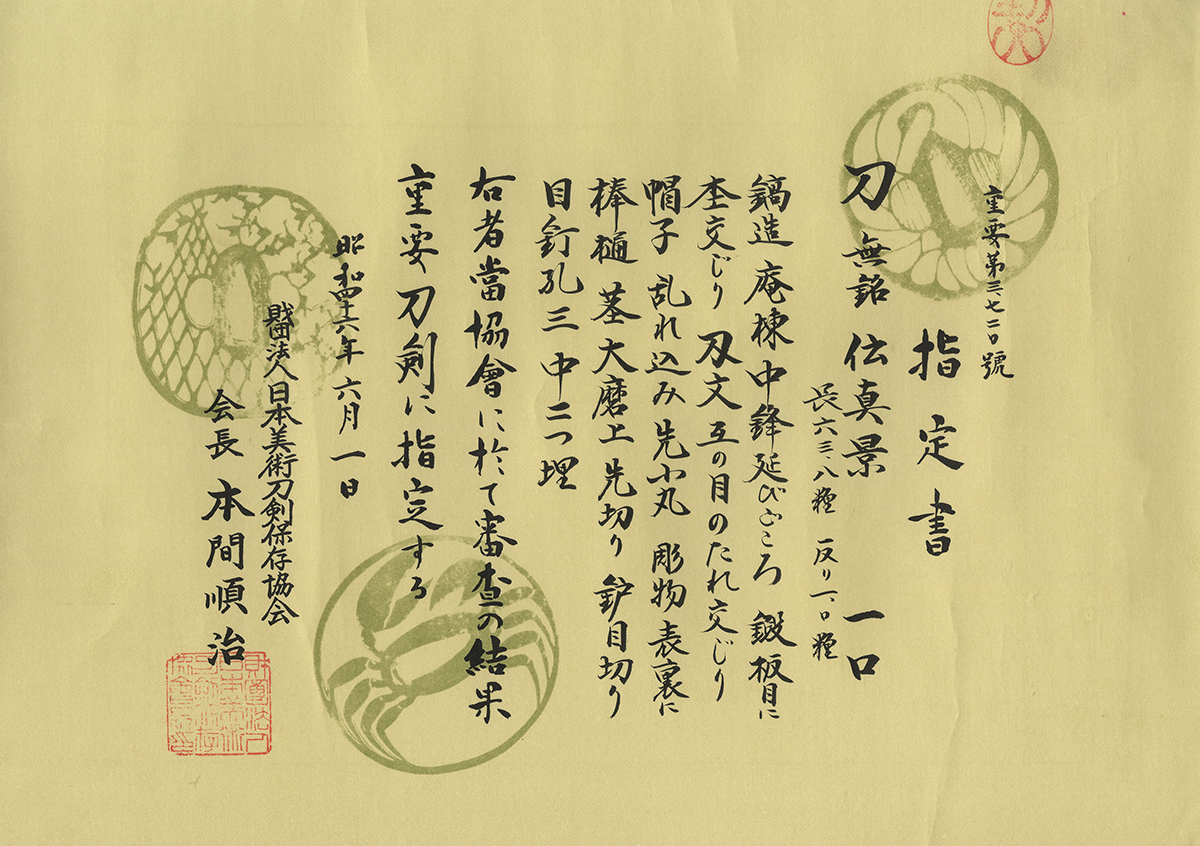 重要第三七二〇號
指定書
刀 無銘 伝真景 一口
長六三、八糎 反り一、〇糎
鎬造 庵棟 中鋒延びごころ 鍛板目に
杢交じり 刃文互の目のたれ交じり
帽子 乱れ込み先小丸 彫物表裏に
棒樋 茎大磨上 先切り 鈩目切り
目釘孔三中二つ埋
右者當協會に於て審査の結果
重要刀剣に指定する
昭和四十六年六月一日
財団法人日本美術刀剣保存協会
会長 本間順治